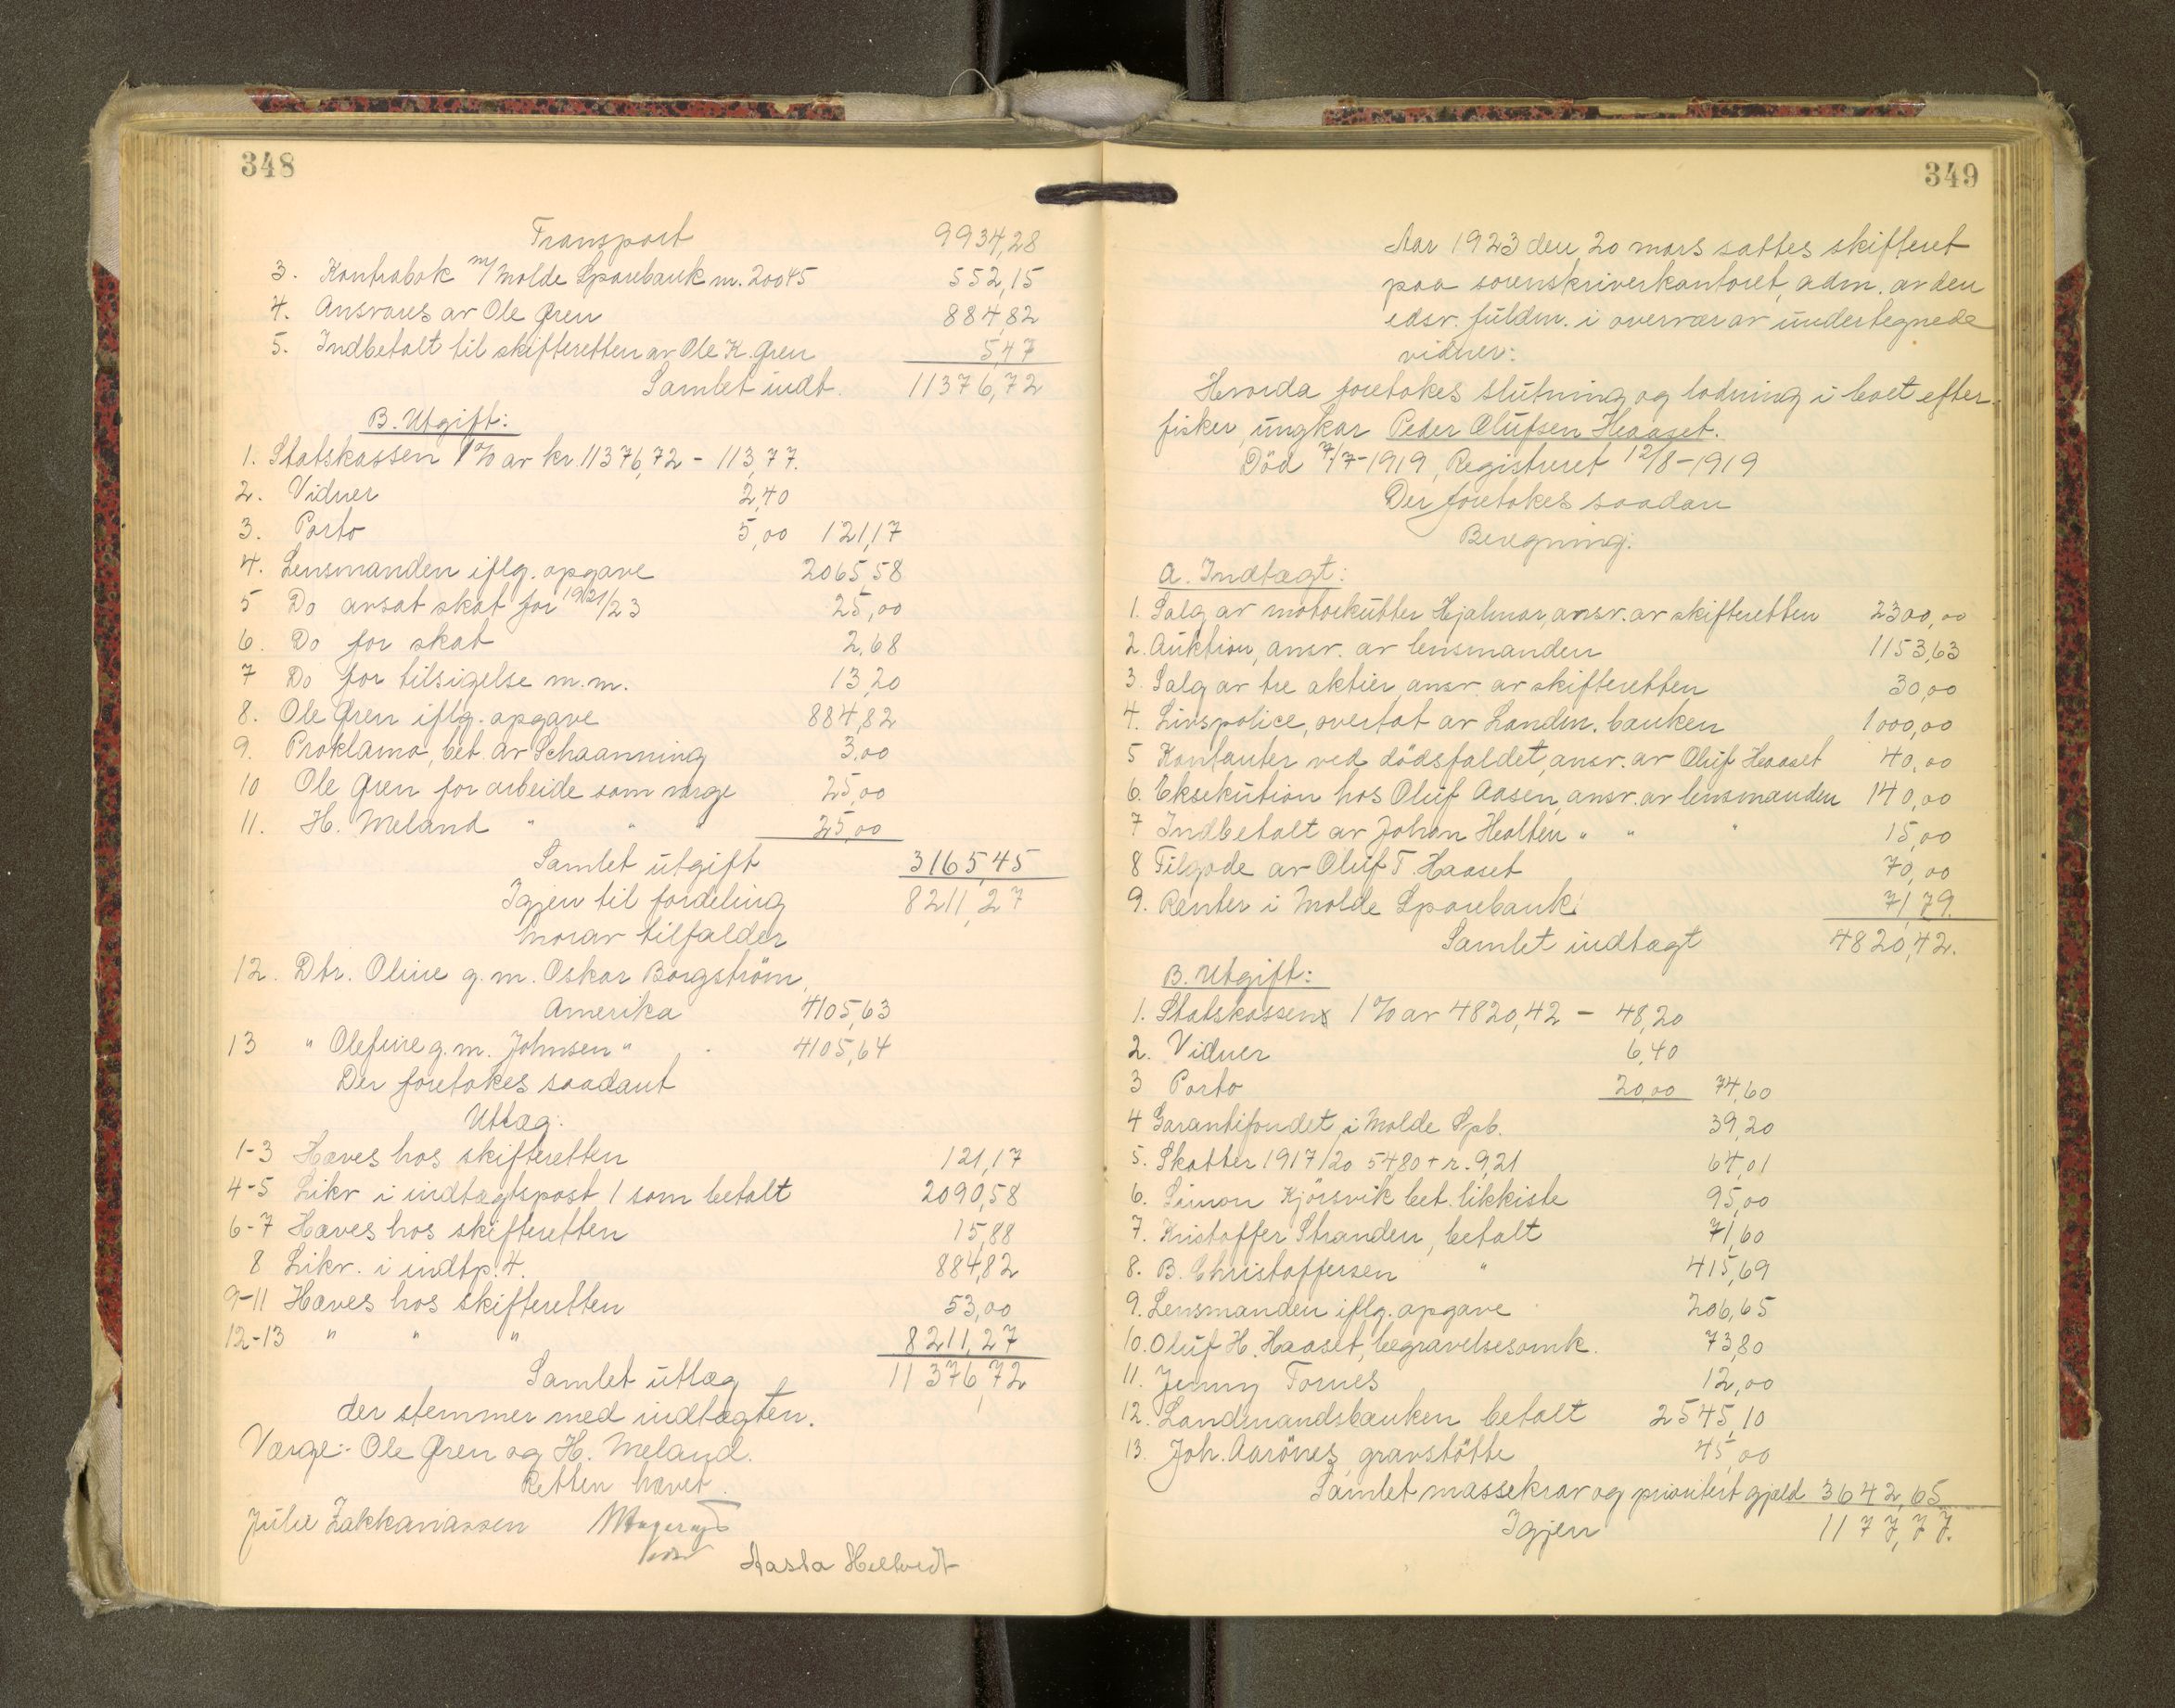 348
Transport 9934,28
3. Kontrabok m/ Molde Sparebank nr. 20045 552,15
4. Ansvares av Ole Gren 884,82
5. Indbetalt til skifteretten av Ole K. Gren 5,47
Samlet indt. 11376,72
B. Utgift:
1. Statskassen 1% av kr. 11376,72 - 113,77.
2. Vidner 2,40
3. Porto 5,00 121,17
4. Lensmanden iflg. opgave 2065,58
5 Do ansat skat for 1921/23 25,00
6. Do for skat 2,68
7 Do for tilsigelse m.m. 13,20
8. Ole Gren iflg. opgave 884,82
9. Proklama, bet. av Schaanning 3,00
10 Ole Gren for arbeide som verge 25,00
11. H. Meland " " " 25,00
Samlet utgift 3165,45
Igjen til fordeling 8211,27
hvorav tilfalder
12. Dtr. Oline g.m. Oskar Borgström,
Amerika 4105,63
13 " Olefine g.m. Johnsen " 4105,64
Der foretokes saadant
Utlæg:
1-3 Hæves hos skifteretten 121,17
4-5 Likv. i indtægtspost 1 som betalt 2090,58
6-7 Hæves hos skifteretten 15,88
8 Likv. i indtp. 4. 884,82
9-11 Hæves hos skifteretten 53,00
12-13 " " " 8211,27
Samlet utlæg 11376,72
der stemmer med indtægten.
Værge:- Ole Gren og H. Meland.
Retten hævet.
Julie Zakkariassen
Aasta Helltvedt
349
Aar 1923 den 20 mars sattes skifteret
paa sorenskriverkontoret, adm. av den
edsv. fuldm. i overvær av undertegnede
vidner:
Hvorda foretokes slutning og lodning i boet efter
fisker, ungkar Peder Olufsen Heaaset.
Död 7/7-1919, Registreret 12/8-1919
Der foretokes saadan
Beregning:
A. Indtægt:
1. Salg av motorkutter Hjalmar, ansv. av skifteretten 2300,00
2. Auktion, ansv. av lensmanden 1153,63
3. Salg av tre aktier, ansv. av skifteretten 30,00
4. Livspolice, overtat av Landm. banken 1000,00
5 Kontanter ved dödsfaldet, ansv. av Oluf Heaaset 40,00
6. Eksekution hos Oluf Aasen, ansv. av lensmanden 140,00
7 Indbetalt av Johan Healten " " " 15,00
8 Tilgode av Oluf T. Haaset 70,00
9. Renter i Molde Sparebank 71,79.
Samlet indtægt 4820,42.
B. Utgift:
1. Statskassen 1% av 4820,42 - 48,20
2. Vidner 6,40
3 Porto 20,00 74,60
4 Garantifondet i Molde Spb. 39,20
5. Skatter 1917/20 54,80 + r. 9,21 64,01
6. Simon Kjörsvik bet. likkiste 95,00
7. Kristoffer Stranden, betalt 71,60
8. B. Christoffersen " 415,69
9. Lensmanden iflg. opgave 206,65
10. Oluf H. Haaset, begravelsesomk. 73,80
11. Jenny Tornes 12,00
12. Landmandsbanken betalt 2545,10
13. Joh. Aarönes, gravstötte 45,00
Samlet massekrav og prioritert gjæld 3642,65
Igjen 1177,77.